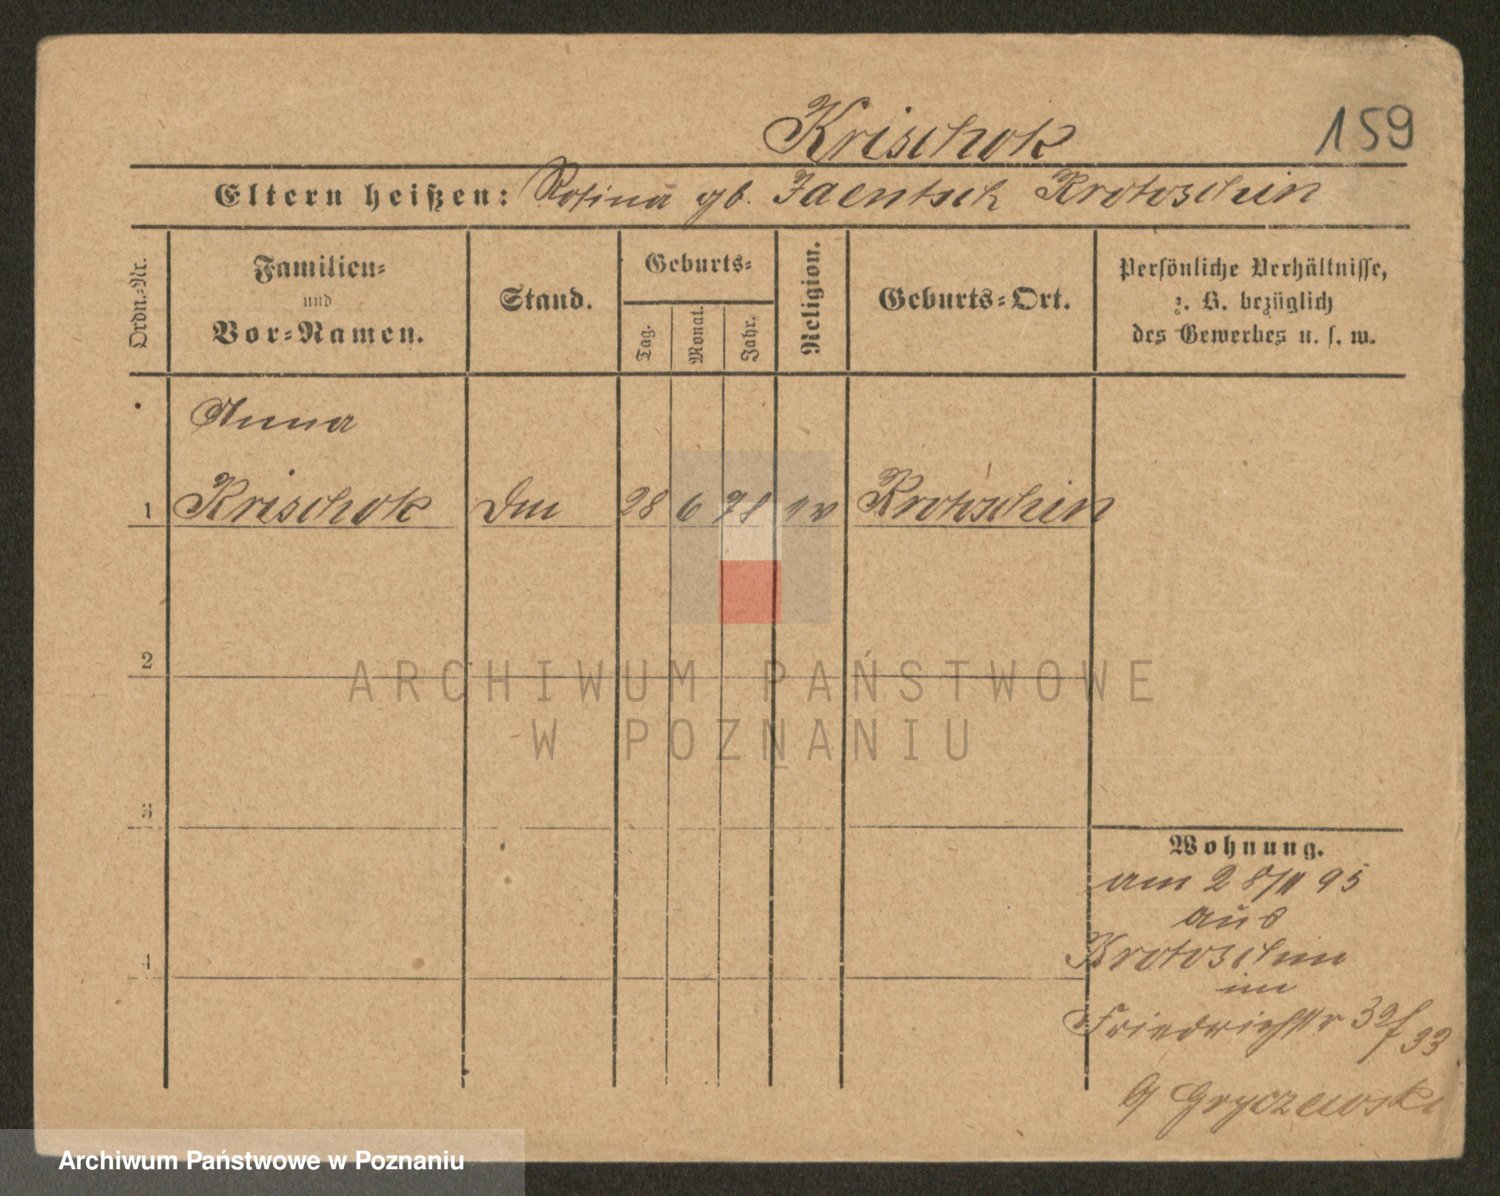 Krischok
159
Eltern heißen: Rosina gb. Jaentsch Krotoschin
Ordn.-Nr.
Familien-
und
Vor-Namen.
Stand.
Geburts-
Tag.
Monat.
Jahr.
Religion.
Geburts-Ort.
Persönliche Verhältnisse,
z. B. bezüglich
des Gewerbes u. s. w.
Anna
1 Krischok 28 6 78 ev Krotoschin
2
ARCHIWUM PAŃSTWOWE
W POZNANIU
3
Wohnung.
am 28/11 95
aus
Krotoschin
4
im
Friedrichstr 32/33
Gryczewski
Archiwum Państwowe w Poznaniu